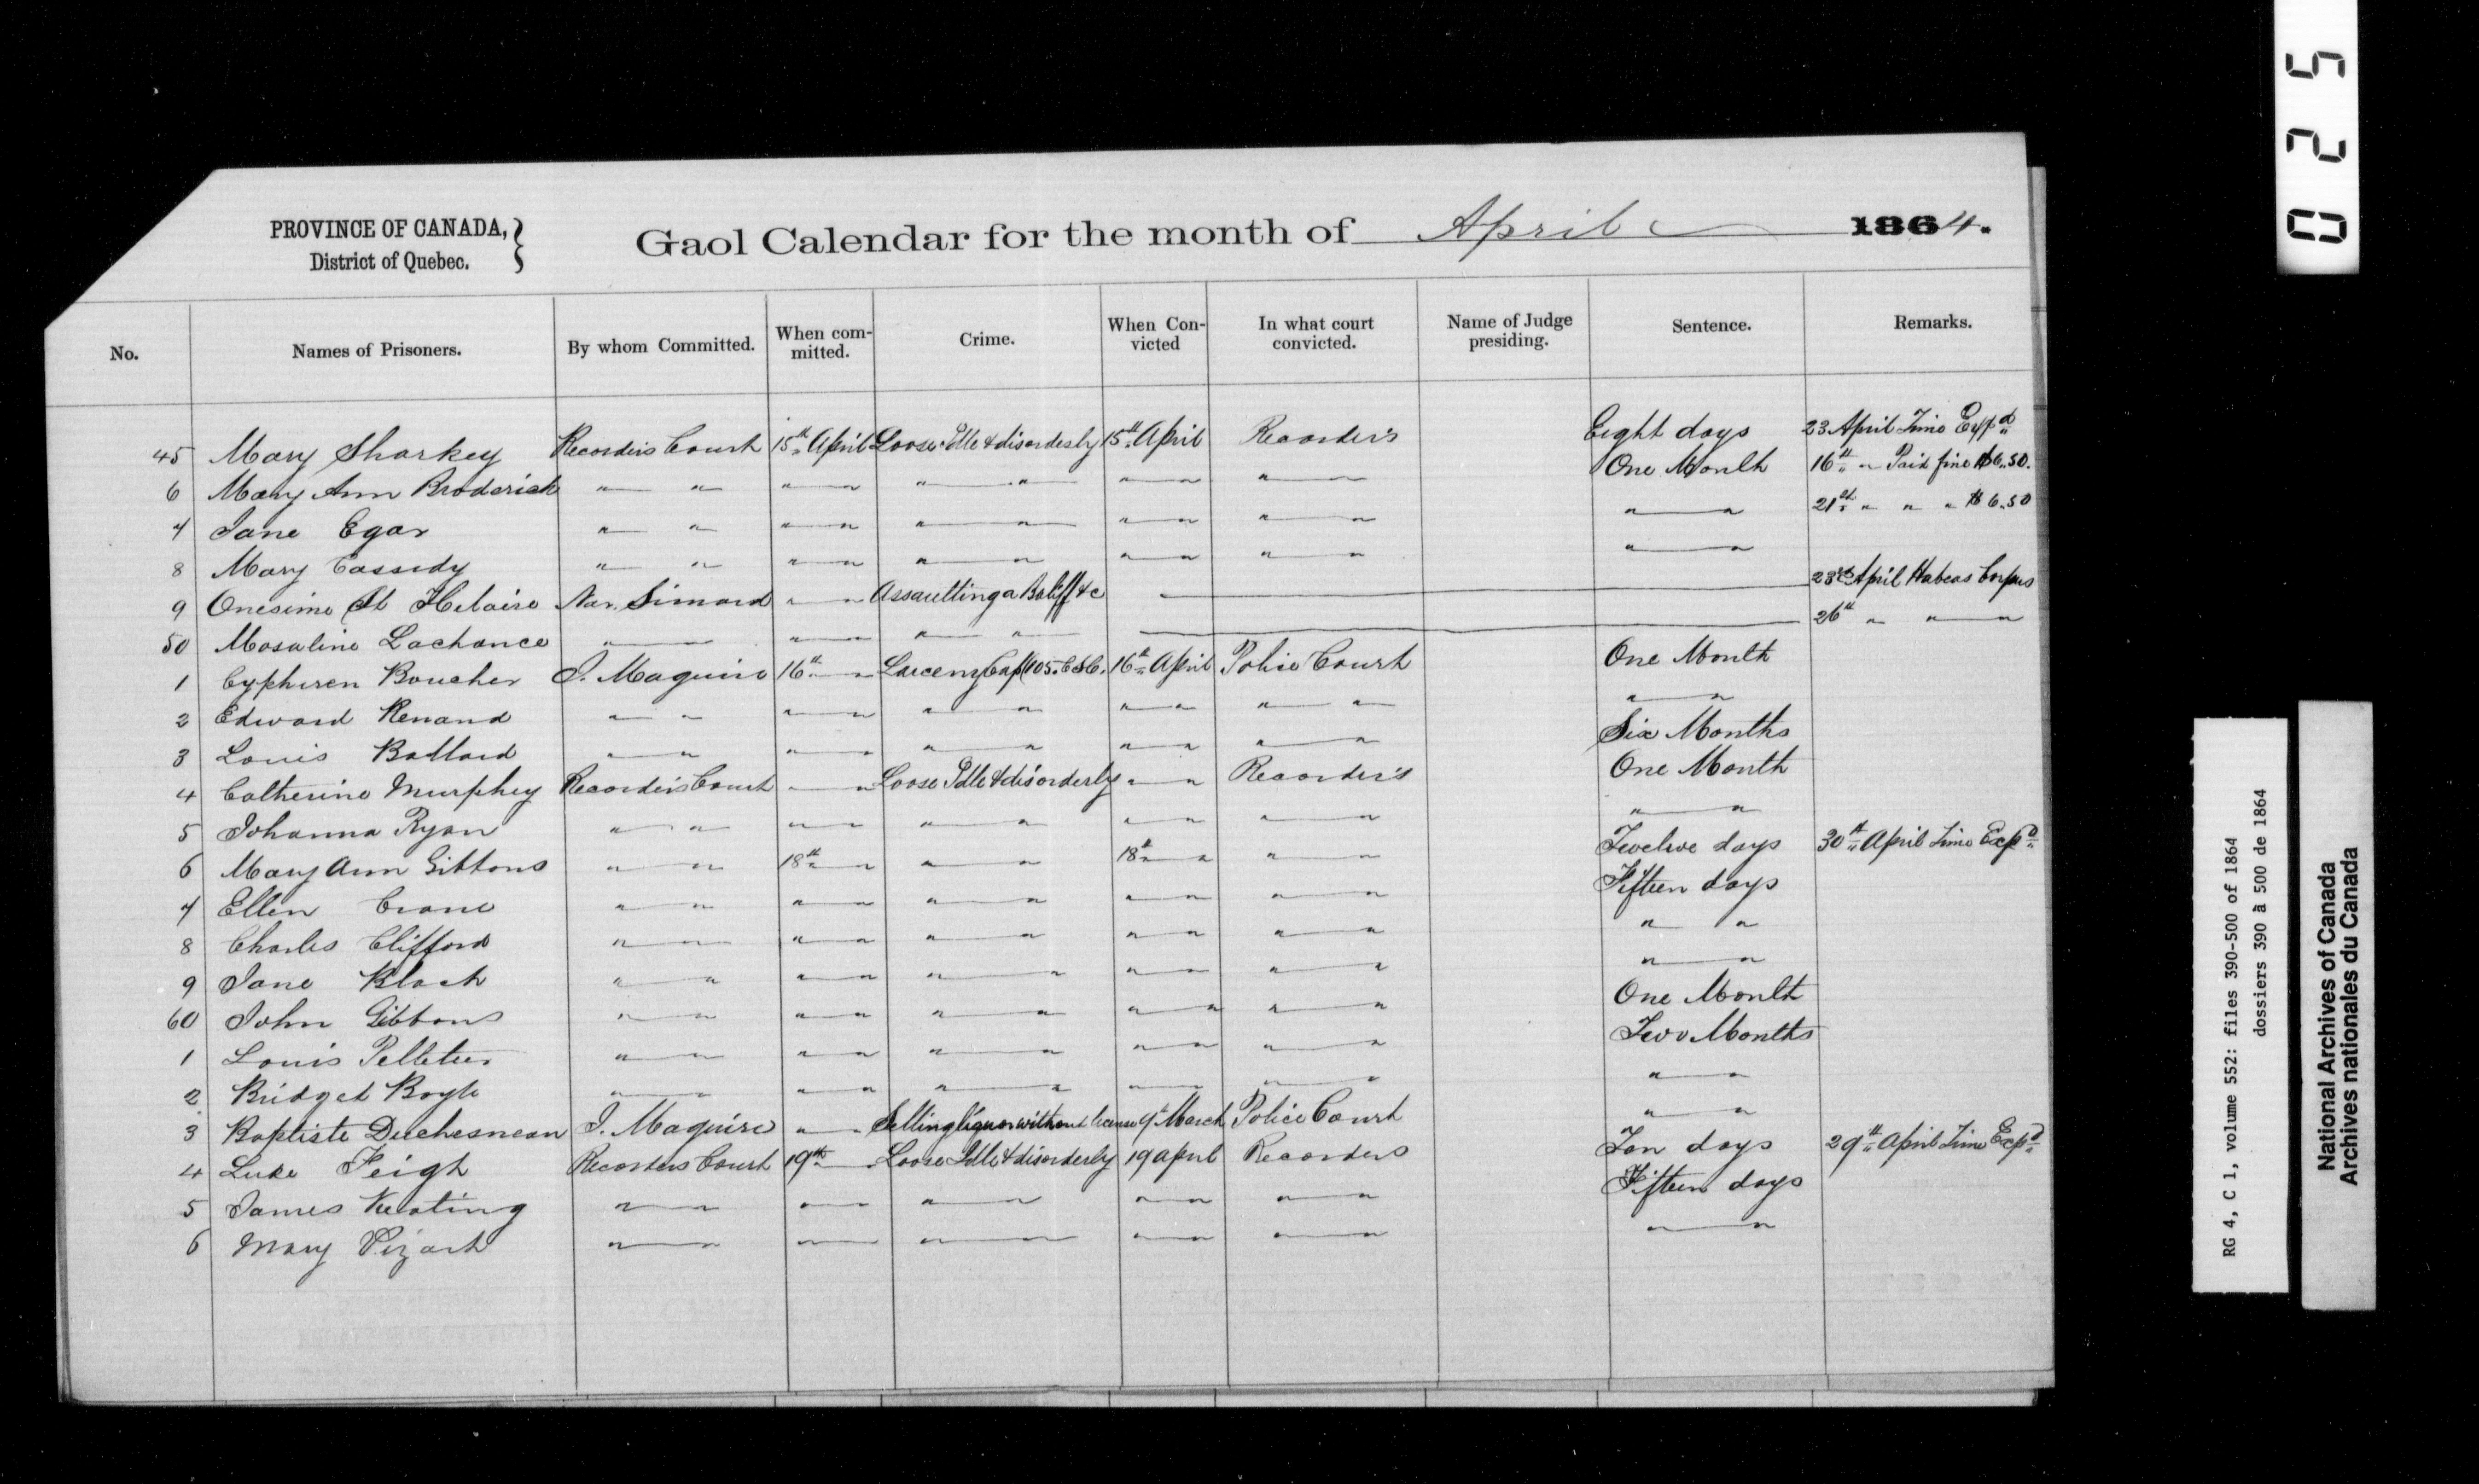 PROVINCE OF CANADA,
District of Quebec.
Gaol Calendar for the month of April 1864.
No. Names of Prisoners. By whom Committed. When com-mitted. Crime. When Con-victed In what court convicted. Name of Judge presiding. Sentence. Remarks.
45 Mary Sharkey Recorder's Court 15th April Loose Idle & disorderly 15th April Recorder's Eight days 23 April Time Expd
6 Mary Ann Broderick " " " " " " " " " One Month 16th " Paid fine $6.50.
7 Jane Egar " " " " " " " " " " " " 21st " " " $6.50
8 Mary Cassidy " " " " " " " " " " " "
9 Onesime St Hilaire Nar. Simard " " Assaulting a Baliff &c 23rd April Habeas Corpus
50 Lachance " " " " " " 26th " " "
1 Boucher J. Maguire 16th " Larceny Cap 105. C.S.C. 16th April Police Court One Month
2 Edward Renand " " " " " " " " " " " "
3 Louis Ballard " " " " " " " " " " Six Months
4 Catherine Murphy Recorder's Court " " Loose Idle & disorderly " " Recorder's One Month
5 Johanna Ryan " " " " " " " " " " " "
6 Mary Ann Gibbons " " 18th " " " 18th " " " Twelve days 30th April Time Expd
7 Ellen Crane " " " " " " " " " " Fifteen days
8 Charles Clifford " " " " " " " " " " " "
9 Jane Black " " " " " " " " " " " "
60 John Gibbons " " " " " " " " " " One Month
1 Louis Pelletier " " " " " " " " " " Two Months
2 Bridget Boyle " " " " " " " " " " " "
3 Baptiste Duchesneau J. Maguire " " Selling liquor without license 9th March Police Court " "
4 Luke Feigh Recorders Court 19th " Loose Idle & disorderly 19 April Recorders Ten days 29th April Time Expd
5 James Keating " " " " " " " " " " Fifteen days
6 Mary " " " " " " " " " " " "
025
RG 4, C 1, volume 552: files 390-500 of 1864
dossiers 390 à 500 de 1864
National Archives of Canada
Archives nationales du Canada